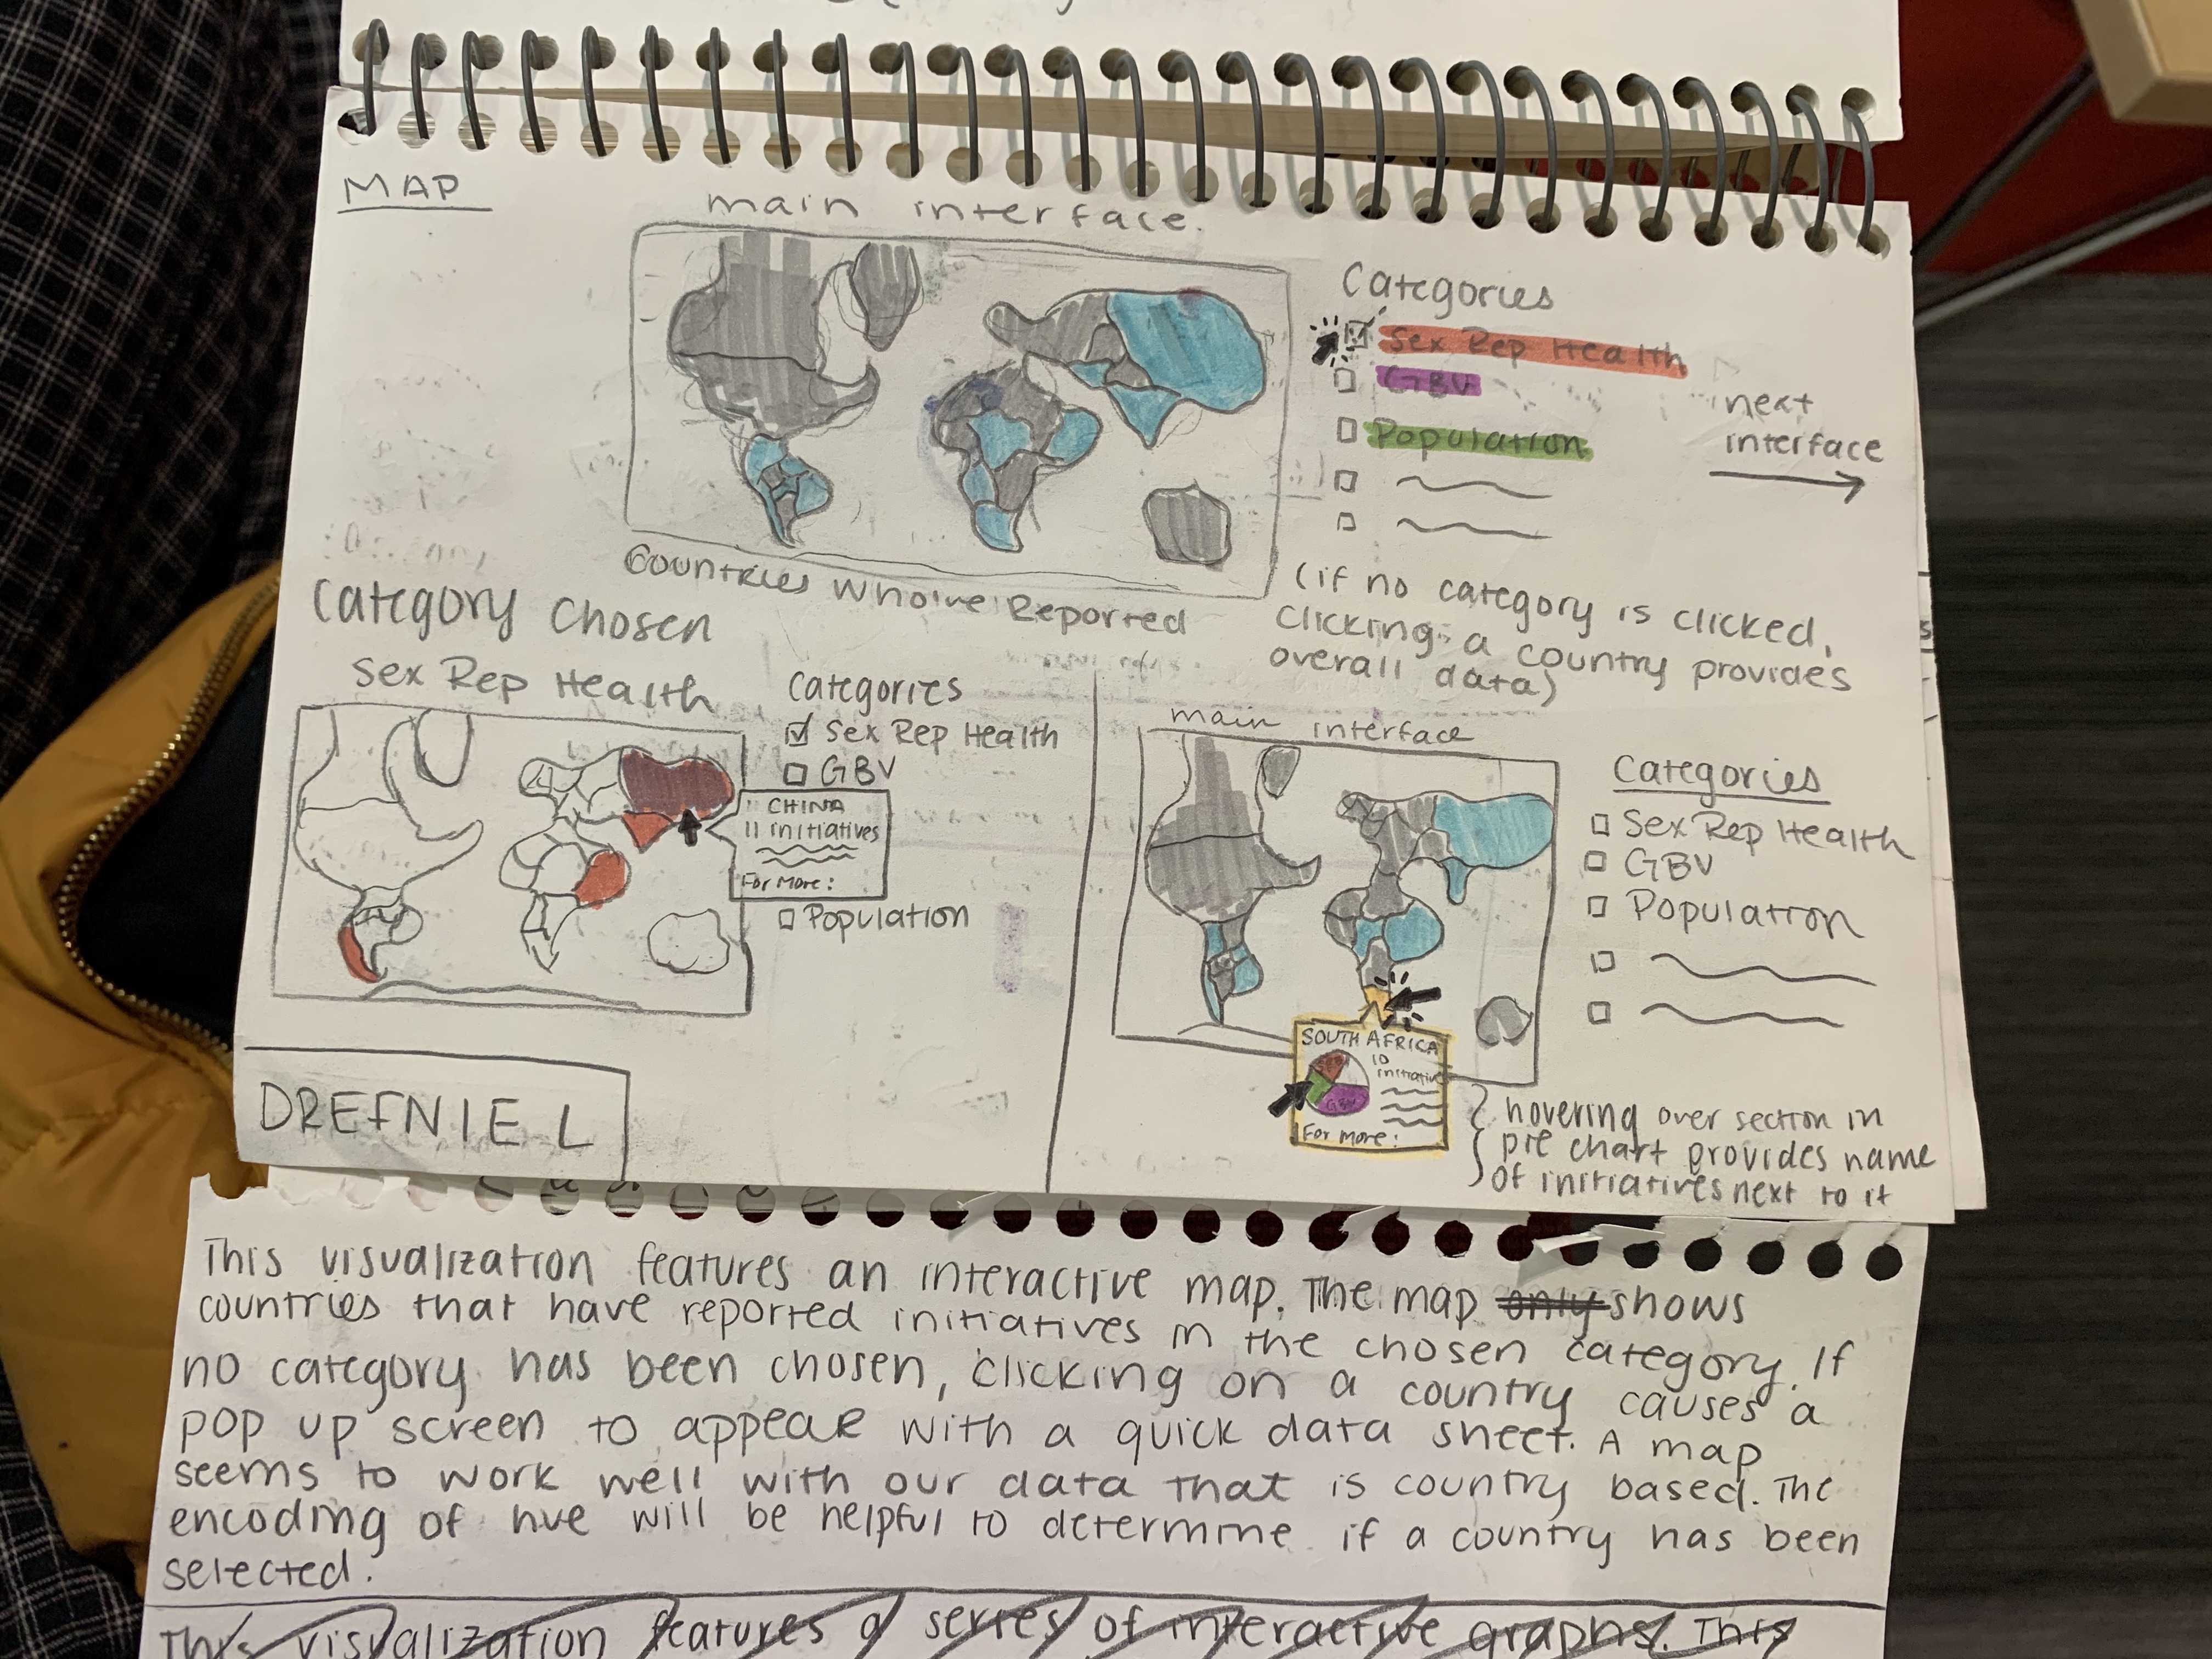 MAP
main interface.
Categories
Sex Rep Health
GBV
Population
next
interface
Countries Who've Reported
(if no category is clicked,
clicking a country provides
overall data)
Category Chosen
Sex Rep Health
Categories
Sex Rep Health
GBV
CHINA
11 initiatives
For More:
Population
main interface
Categories
Sex Rep Health
GBV
Population
SOUTH AFRICA
10
initiative
GBV
For More:
hovering over section in
pie chart provides name
of initiatives next to it
DREFNIE L
This visualization features an interactive map. The map only shows
countries that have reported initiatives in the chosen category. If
no category has been chosen, clicking on a country causes a
pop up screen to appear with a quick data sheet. A map
seems to work well with our data that is country based. The
encoding of hue will be helpful to determine if a country has been
selected.
This visualization features a series of interactive graphs. This